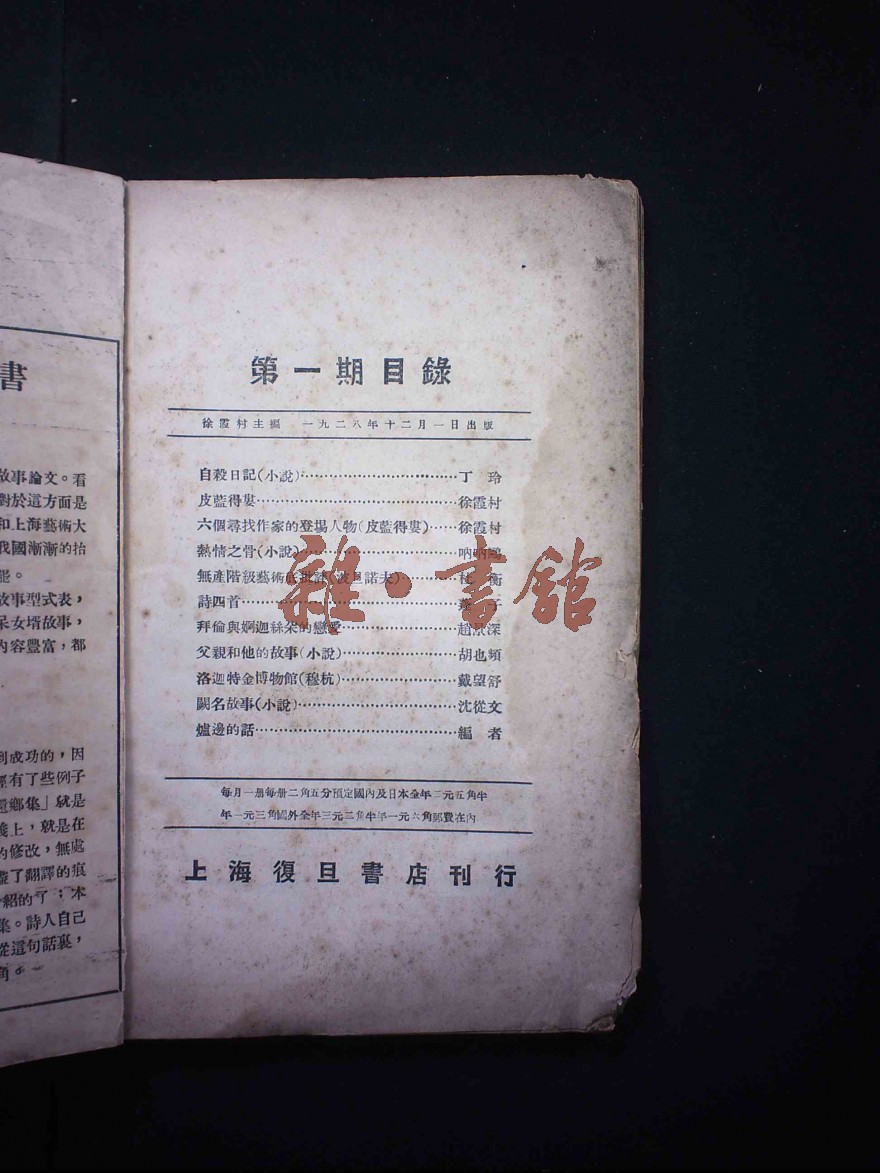 第一期目錄
徐霞村主編　一九二八年十二月一日出版
自殺日記(小說)……………………………丁　玲
皮藍得婁……………………………………徐霞村
六個尋找作家的登場人物(皮藍得婁)……徐霞村
熱情之骨(小說)……………………………吶吶鷗
無產階級藝術底批評(波旦諾夫)…………杜　衡
詩四首………………………………………蓬子
拜倫與婀迦絲朵的戀愛……………………趙景深
父親和他的故事(小說)……………………胡也頻
洛迦特金博物館(穆杭)……………………戴望舒
闕名故事(小說)……………………………沈從文
爐邊的話……………………………………編　者
每月一册每册二角五分預定國內及日本全年二元五角半
年一元三角國外全年三元二角半年一元六角郵費在內
上海復旦書店刊行
書
故事論文。看
對於這方面是
和上海藝術大
我國漸漸的抬
能。
故事型式表，
呆女壻故事，
內容豐富，都
到成功的，因
經有了些例子
還鄉集」就是
上，就是在
的修改，無處
盡了翻譯的痕
紹的了；本
集。詩人自己
從這句話裏，
角。
雜·書館